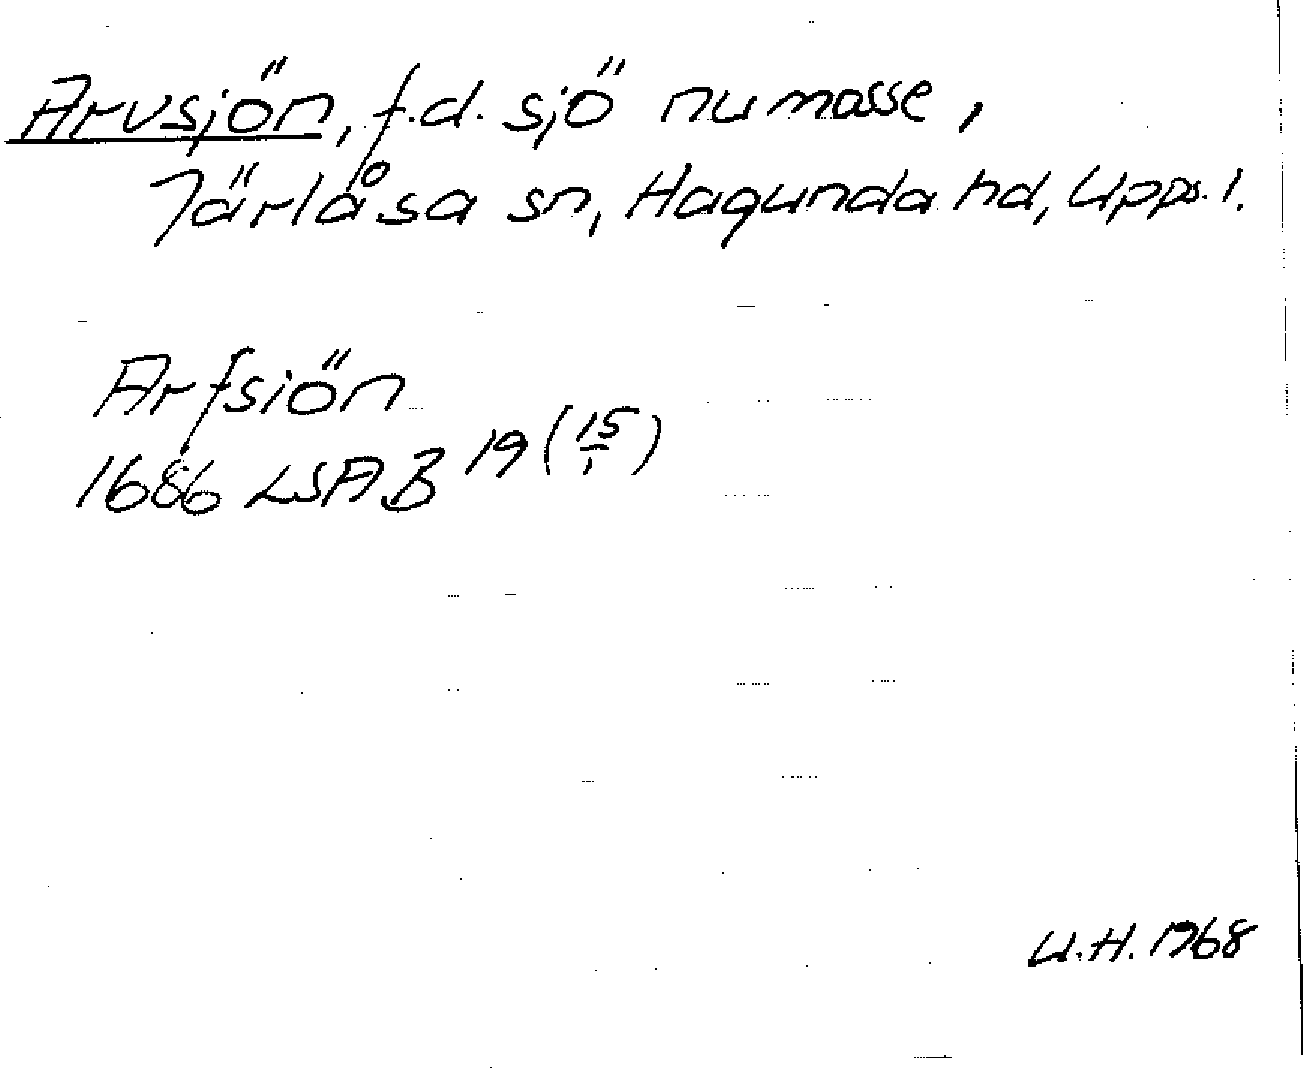 Arvsjön, f.d. sjö nu mosse,
Järlåsa sn, Hagunda hd, Upps. l.
Arfsiön
1686 LSA B 19 (15/1)
U.H. 1968